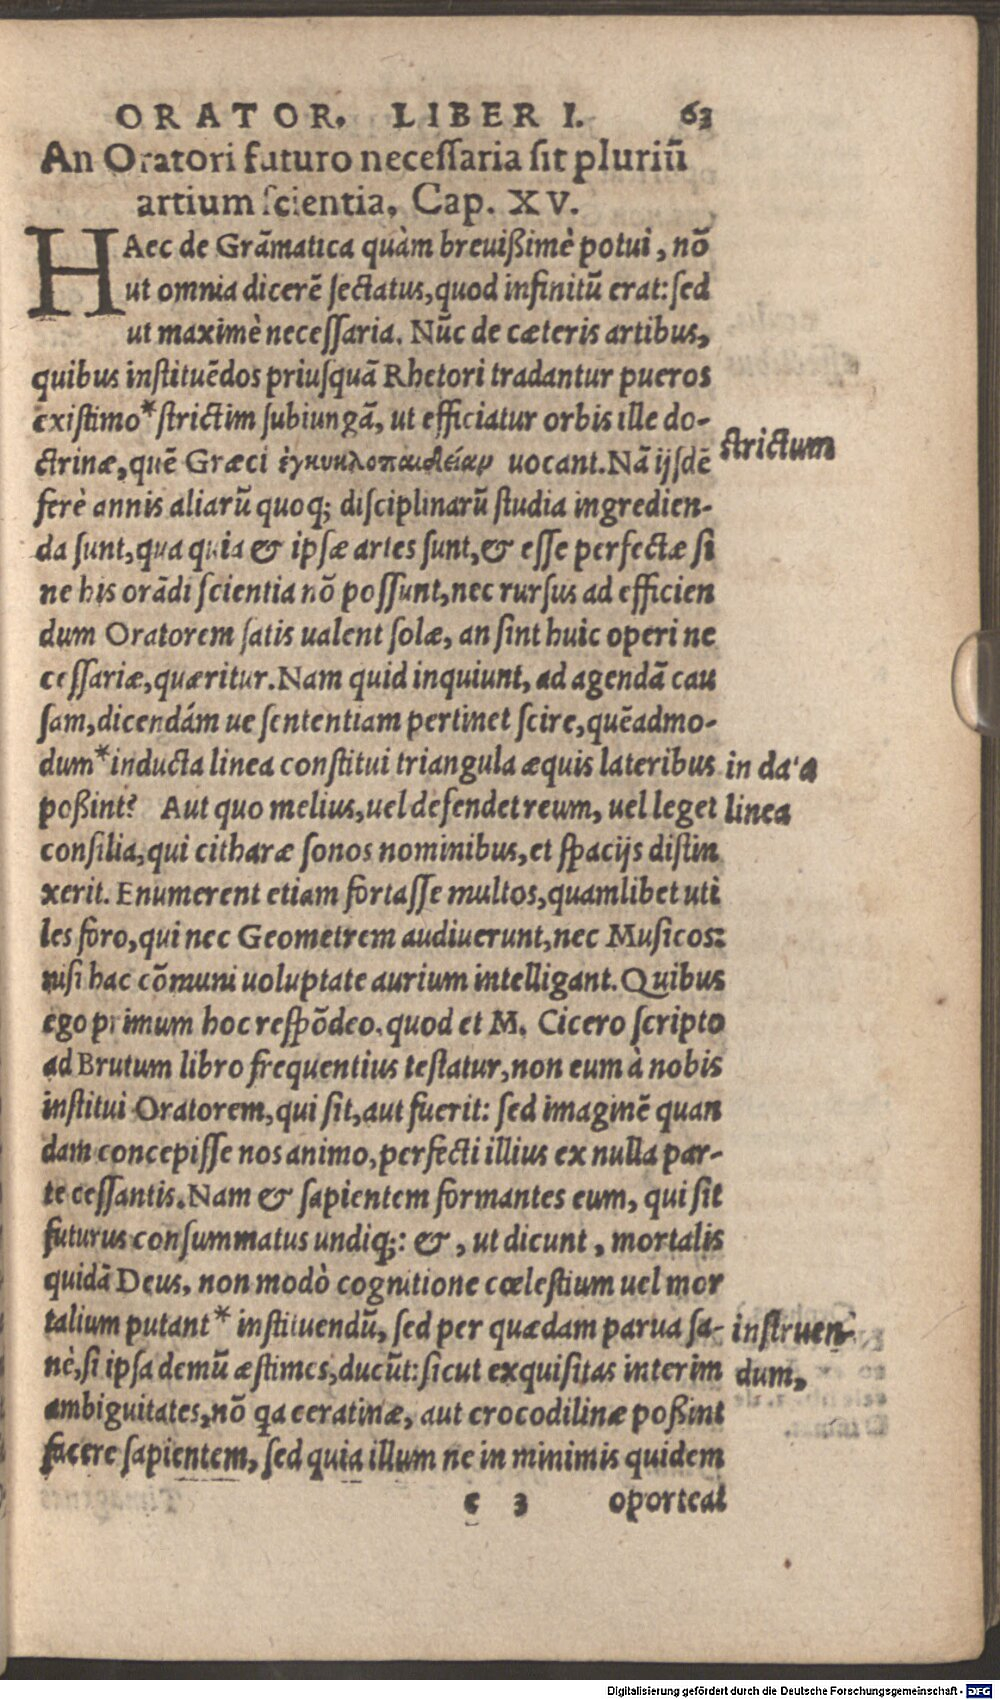 ORATOR. LIBER I. 63
An Oratori futuro necessaria sit pluriũ
artium scientia, Cap. XV.
HAec de Grãmatica quàm breuißimè potui, nõ
ut omnia dicerẽ sectatus, quod infinitũ erat: sed
ut maximè necessaria. Nũc de cæteris artibus,
quibus instituẽdos priusquã Rhetori tradantur pueros
existimo* strictim subiungã, ut efficiatur orbis ille do-
strictum
ctrinæ, quẽ Græci ἐγκυκλοπαιδείαν uocant. Nã ijsdẽ
ferè annis aliarũ quoq; disciplinarũ studia ingredien-
da sunt, qua quia & ipsæ artes sunt, & esse perfectæ si
ne his orãdi scientia nõ possunt, nec rursus ad efficien
dum Oratorem satis ualent solæ, an sint huic operi ne
cessariæ, quæritur. Nam quid inquiunt, ad agendã cau
sam, dicendám ue sententiam pertinet scire, quẽadmo-
dum* inducta linea constitui triangula æquis lateribus
in da'a
poßint? Aut quo melius, uel defendet reum, uel leget
linea
consilia, qui citharæ sonos nominibus, et spacijs distin
xerit. Enumerent etiam fortasse multos, quamlibet uti
les foro, qui nec Geometrem audiuerunt, nec Musicos:
nisi hac cõmuni uoluptate aurium intelligant. Quibus
ego primum hoc respõdeo. quod et M. Cicero scripto
ad Brutum libro frequentius testatur, non eum à nobis
institui Oratorem, qui sit, aut fuerit: sed imaginẽ quan
dam concepisse nos animo, perfecti illius ex nulla par-
te cessantis. Nam & sapientem formantes eum, qui sit
futurus consummatus undiq;: &, ut dicunt, mortalis
quidã Deus, non modò cognitione cœlestium uel mor
talium putant* instituendũ, sed per quædam parua sa-
instruen-
nè, si ipsa demũ æstimes, ducũt: sicut exquisitas interim
dum,
ambiguitates, nõ qa ceratinæ, aut crocodilinæ poßint
facere sapientem, sed quia illum ne in minimis quidem
c 3 oporteat
Digitalisierung gefördert durch die Deutsche Forschungsgemeinschaft - DFG